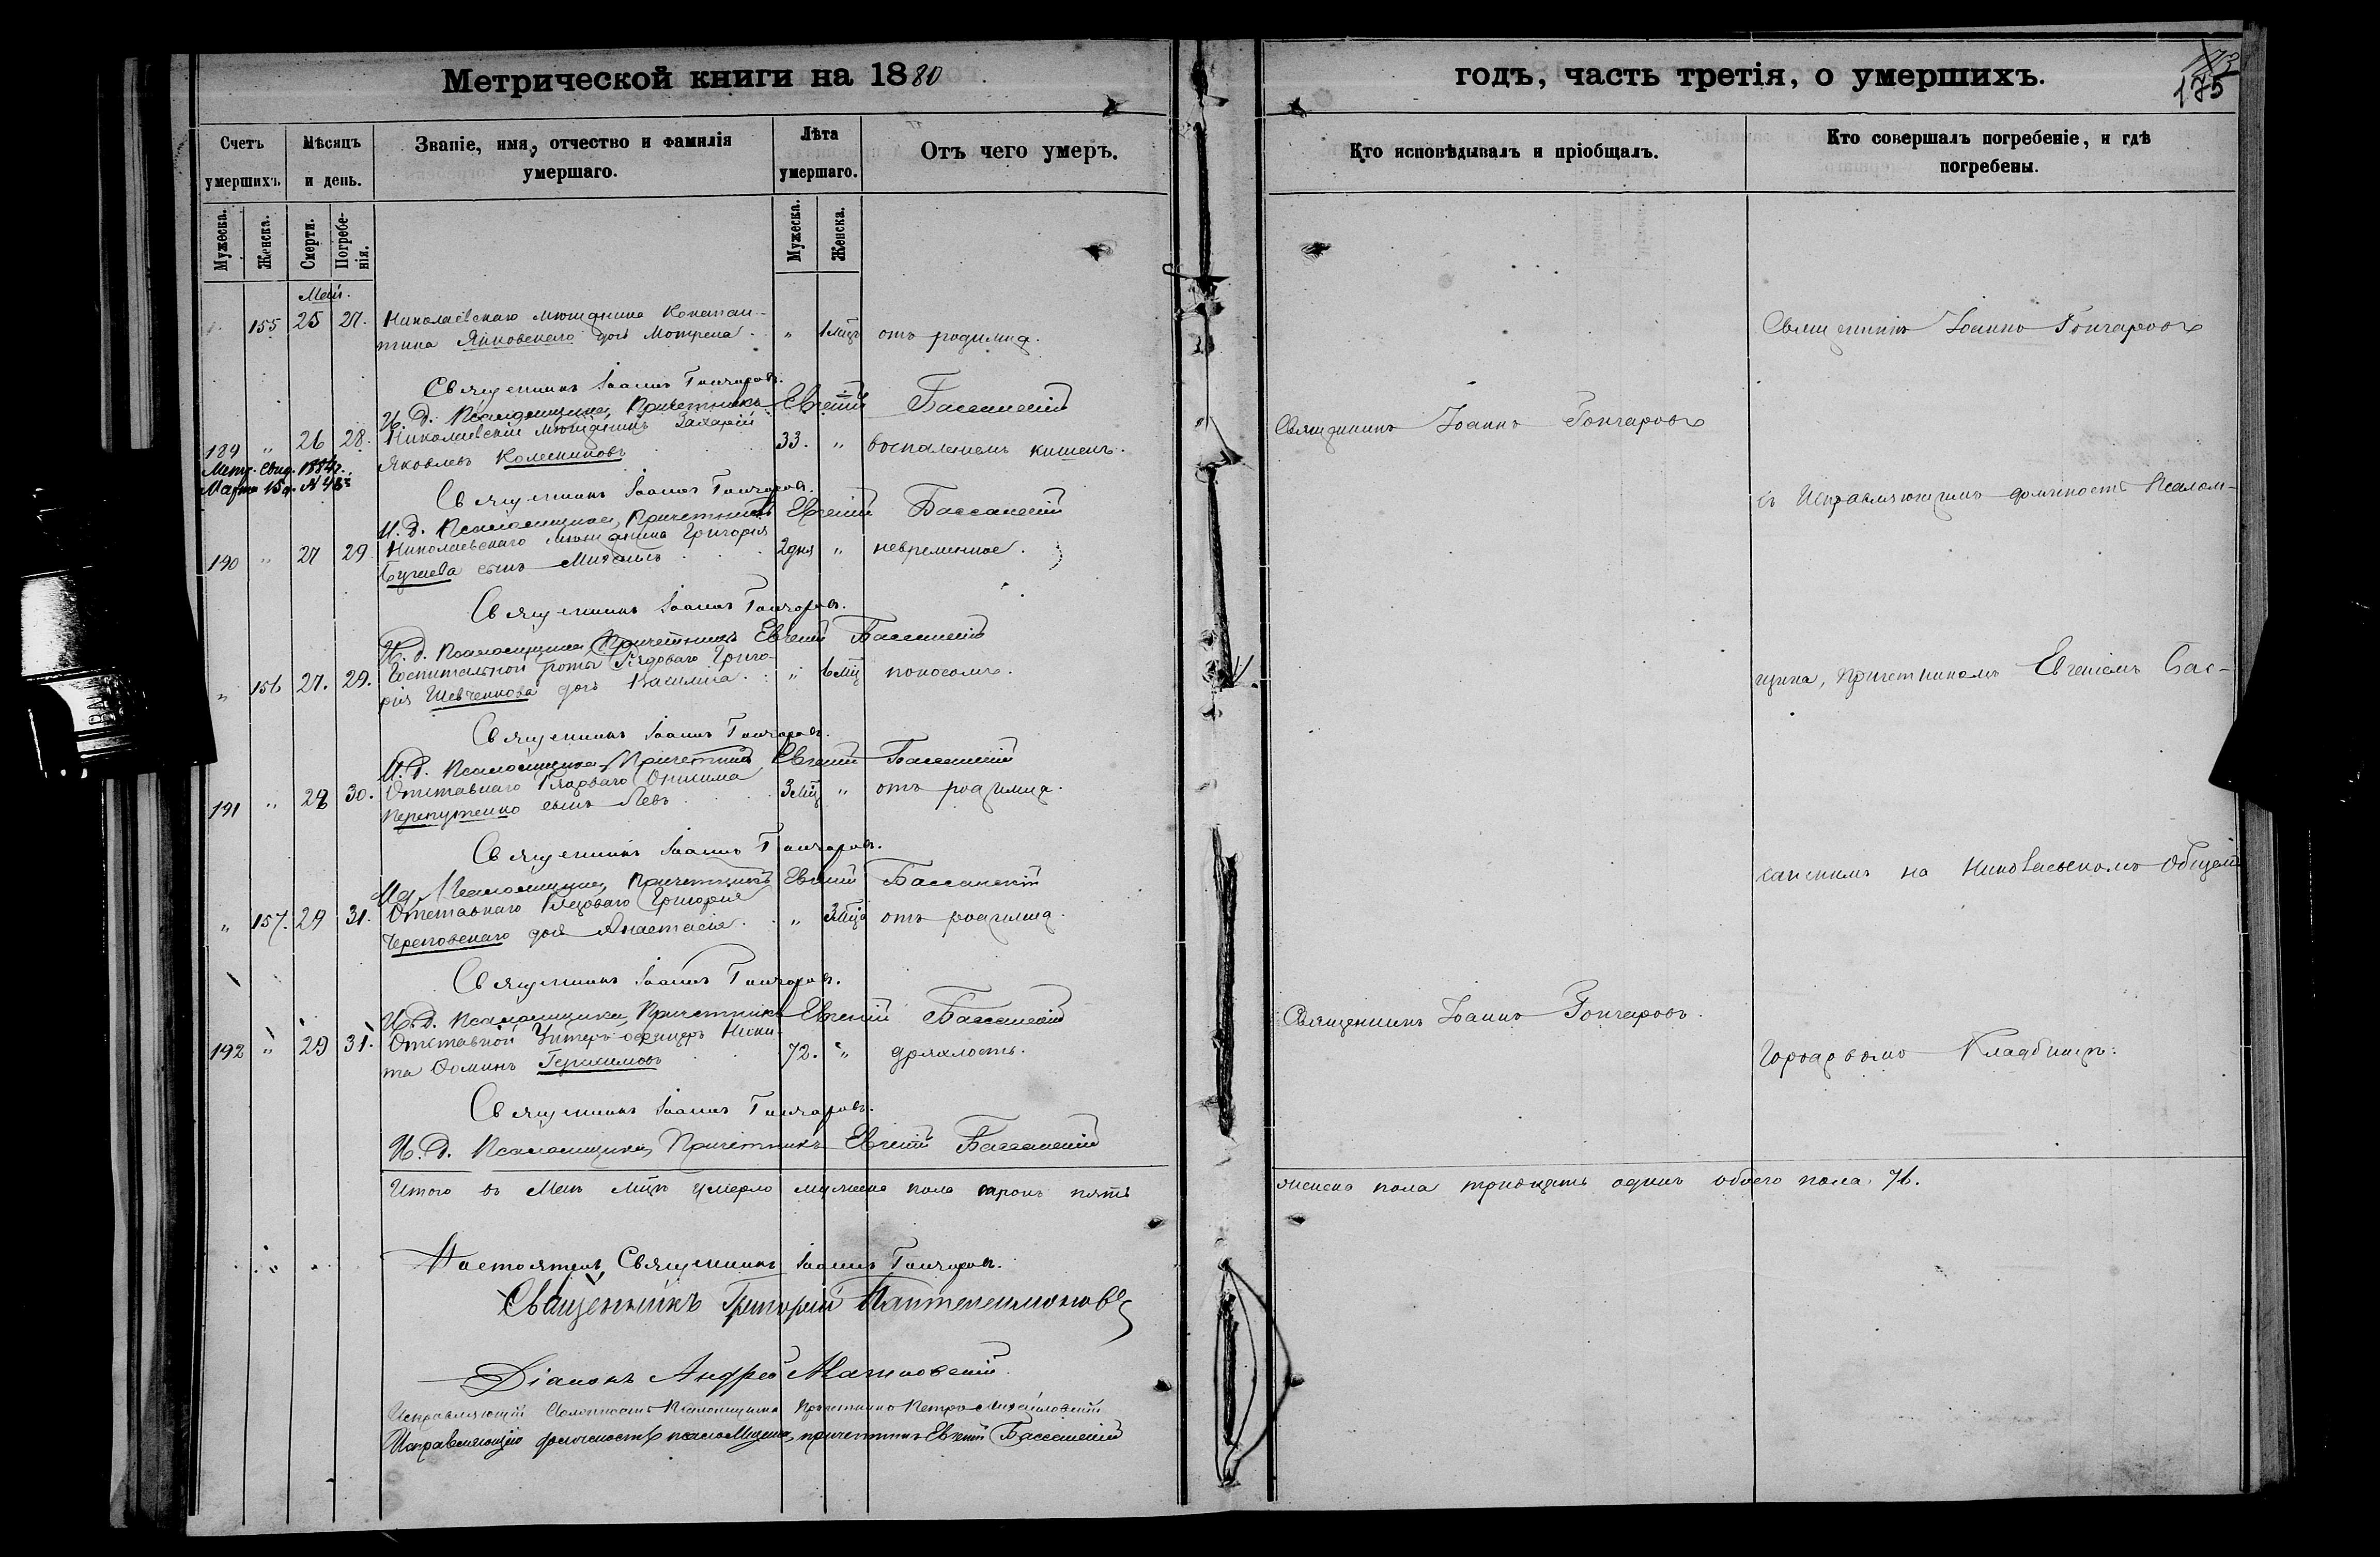 Метрической книги на 1880
годъ, часть третія, о умершихъ.
175
Счетъ умершихъ.
Мѣсяцъ и день.
Званіе, имя, отчество и фамилія умершаго.
Лѣта умершаго.
Отъ чего умеръ.
Кто исповѣдывалъ и пріобщалъ.
Кто совершалъ погребеніе, и гдѣ погребены.
Мужеска.
Женска.
Смерти.
Погребенія.
Мужеска.
Женска.
Май.
155 25 27. Николаевскаго мѣщанина Констан-
тина Янковскаго дочь Мотрена " 1 мцъ отъ родимца.
Священникъ Іоаннъ Гончаровъ
Священникъ Іоаннъ Гончаровъ.
И. Д. Псаломщика, Причетникъ Евгеній Бассанскій
189 " 26 28. Николаевскій мѣщанинъ Захарій
Яковлевъ Колесниковъ 33. " воспаленіемъ кишекъ.
Священникъ Іоаннъ Гончаровъ
Метр. свид. 1884 г.
Марта 15 д. №
Священникъ Іоаннъ Гончаровъ.
И. Д. Псаломщика, Причетникъ Евгеній Бассанскій
съ Исправляющимъ должность Псалом-
190 " 27 29. Николаевскаго мѣщанина Григорія
сынъ Михаилъ 2 дня " невременное.
Священникъ Іоаннъ Гончаровъ.
И. д. Псаломщика, Причетникъ Евгеній Бассанскій
" 156 27. 29. Госпитальной роты Рядоваго Григо-
рія Шевченкова дочь Василиса " мцъ поносомъ.
щика, Причетникомъ Евгеніемъ Бас-
Священникъ Іоаннъ Гончаровъ.
И. Д. Псаломщика, Причетникъ Евгеній Бассанскій
191 " 28 30. Отставнаго Рядоваго Онисима
сынъ Левъ 3 мцъ " отъ родимца.
Священникъ Іоаннъ Гончаровъ.
И. д. Псаломщика, Причетникъ Евгеній Бассанскій
санскимъ на Николаевскомъ Общемъ
" 157. 29 31. Отставнаго Рядоваго Григорія
Череповскаго дочь Анастасія " 3 мца отъ родимца.
Священникъ Іоаннъ Гончаровъ.
И. Д. Псаломщика, Причетникъ Евгеній Бассанскій
192 " 29 31. Отставной Унтеръ-офицеръ Ники-
та Ѳоминъ Герасимовъ 72. " дряхлость.
Священникъ Іоаннъ Гончаровъ.
Городскомъ Кладбищѣ.
Священникъ Іоаннъ Гончаровъ.
И. Д. Псаломщика, Причетникъ Евгеній Бассанскій
Итого въ Маѣ мцѣ умерло мужеска пола сорокъ пять
женска пола тридцать одинъ обоего пола 76.
Настоятель, Священникъ Іоаннъ Гончаровъ.
Священникъ Григорій Пантелеимоновъ
Діаконъ Андрей
Исправляющій должность Псаломщика Причетникъ Петръ Михайловскій
Исправляющій должность псаломщика, причетникъ Евгеній Бассанскій